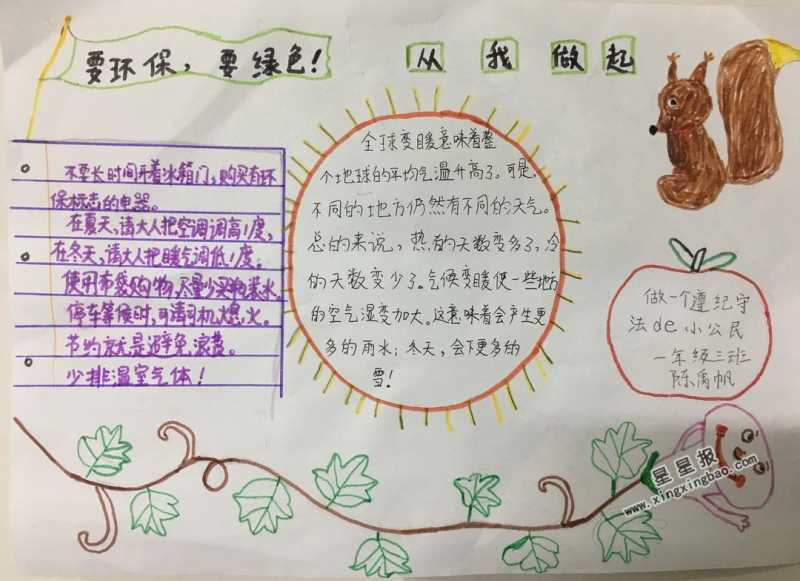 要环保，要绿色！
从我做起
不要长时间开着冰箱门，购买有环
保标志的电器。
在夏天，请大人把空调调高1度，
在冬天，请大人把暖气调低1度。
使用布袋购物，尽量少买狗装水
停车等候时，可请司机熄火。
节约就是避免浪费。
少排温室气体！
全球变暖意味着整
个地球的平均气温升高了。可是，
不同的地方仍然有不同的天气。
总的来说，热的天数变多了，冷
的天数变少了。气候变暖使一些地方
的空气湿变加大。这意味着会产生更
多的雨水；冬天，会下更多的
雪！
做一个遵纪守
法de小公民
一年级三班
陈禹帆
星星报
www.xingxingbao.com